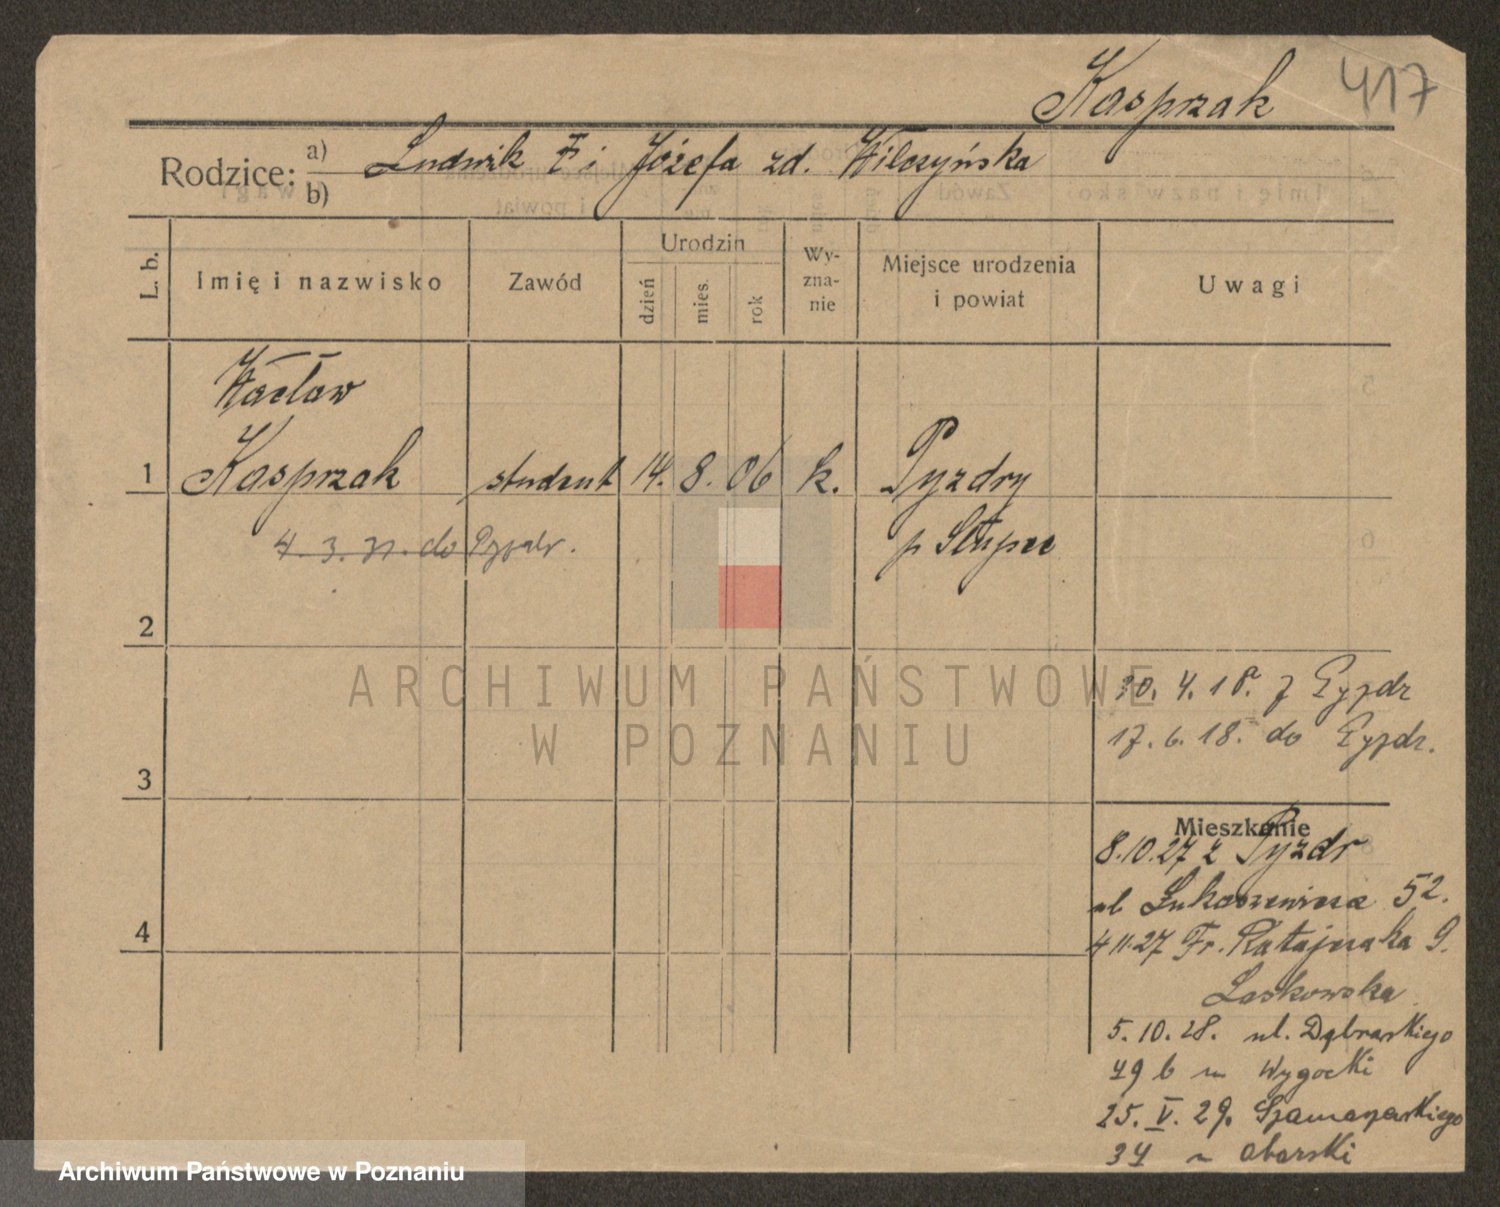 Kasprzak 417
Rodzice: a) Ludwik i Józefa zd. Wilczyńska
b)
L. b. Imię i nazwisko Zawód Urodzin dzień mies. rok Wyznanie Miejsce urodzenia i powiat Uwagi
Wacław
1 Kasprzak student 14. 8. 06 k. Pyzdry
4. 3. 31. do Pyzdr. p Słupce
2
ARCHIWUM PAŃSTWOWE
W POZNANIU
4. 18. z Pyzdr
17. 6. 18. do Pyzdr.
3
Mieszkanie
8.10.27 z Pyzdr
ul. Łukaszewicza 52.
4 11.27 Fr. Ratajczaka 9.
4
Laskowska
5. 10. 28. ul. Dąbrowskiego
49 b u Wygocki
25. V. 29. Szamarzewskiego
34 u Oborski
Archiwum Państwowe w Poznaniu